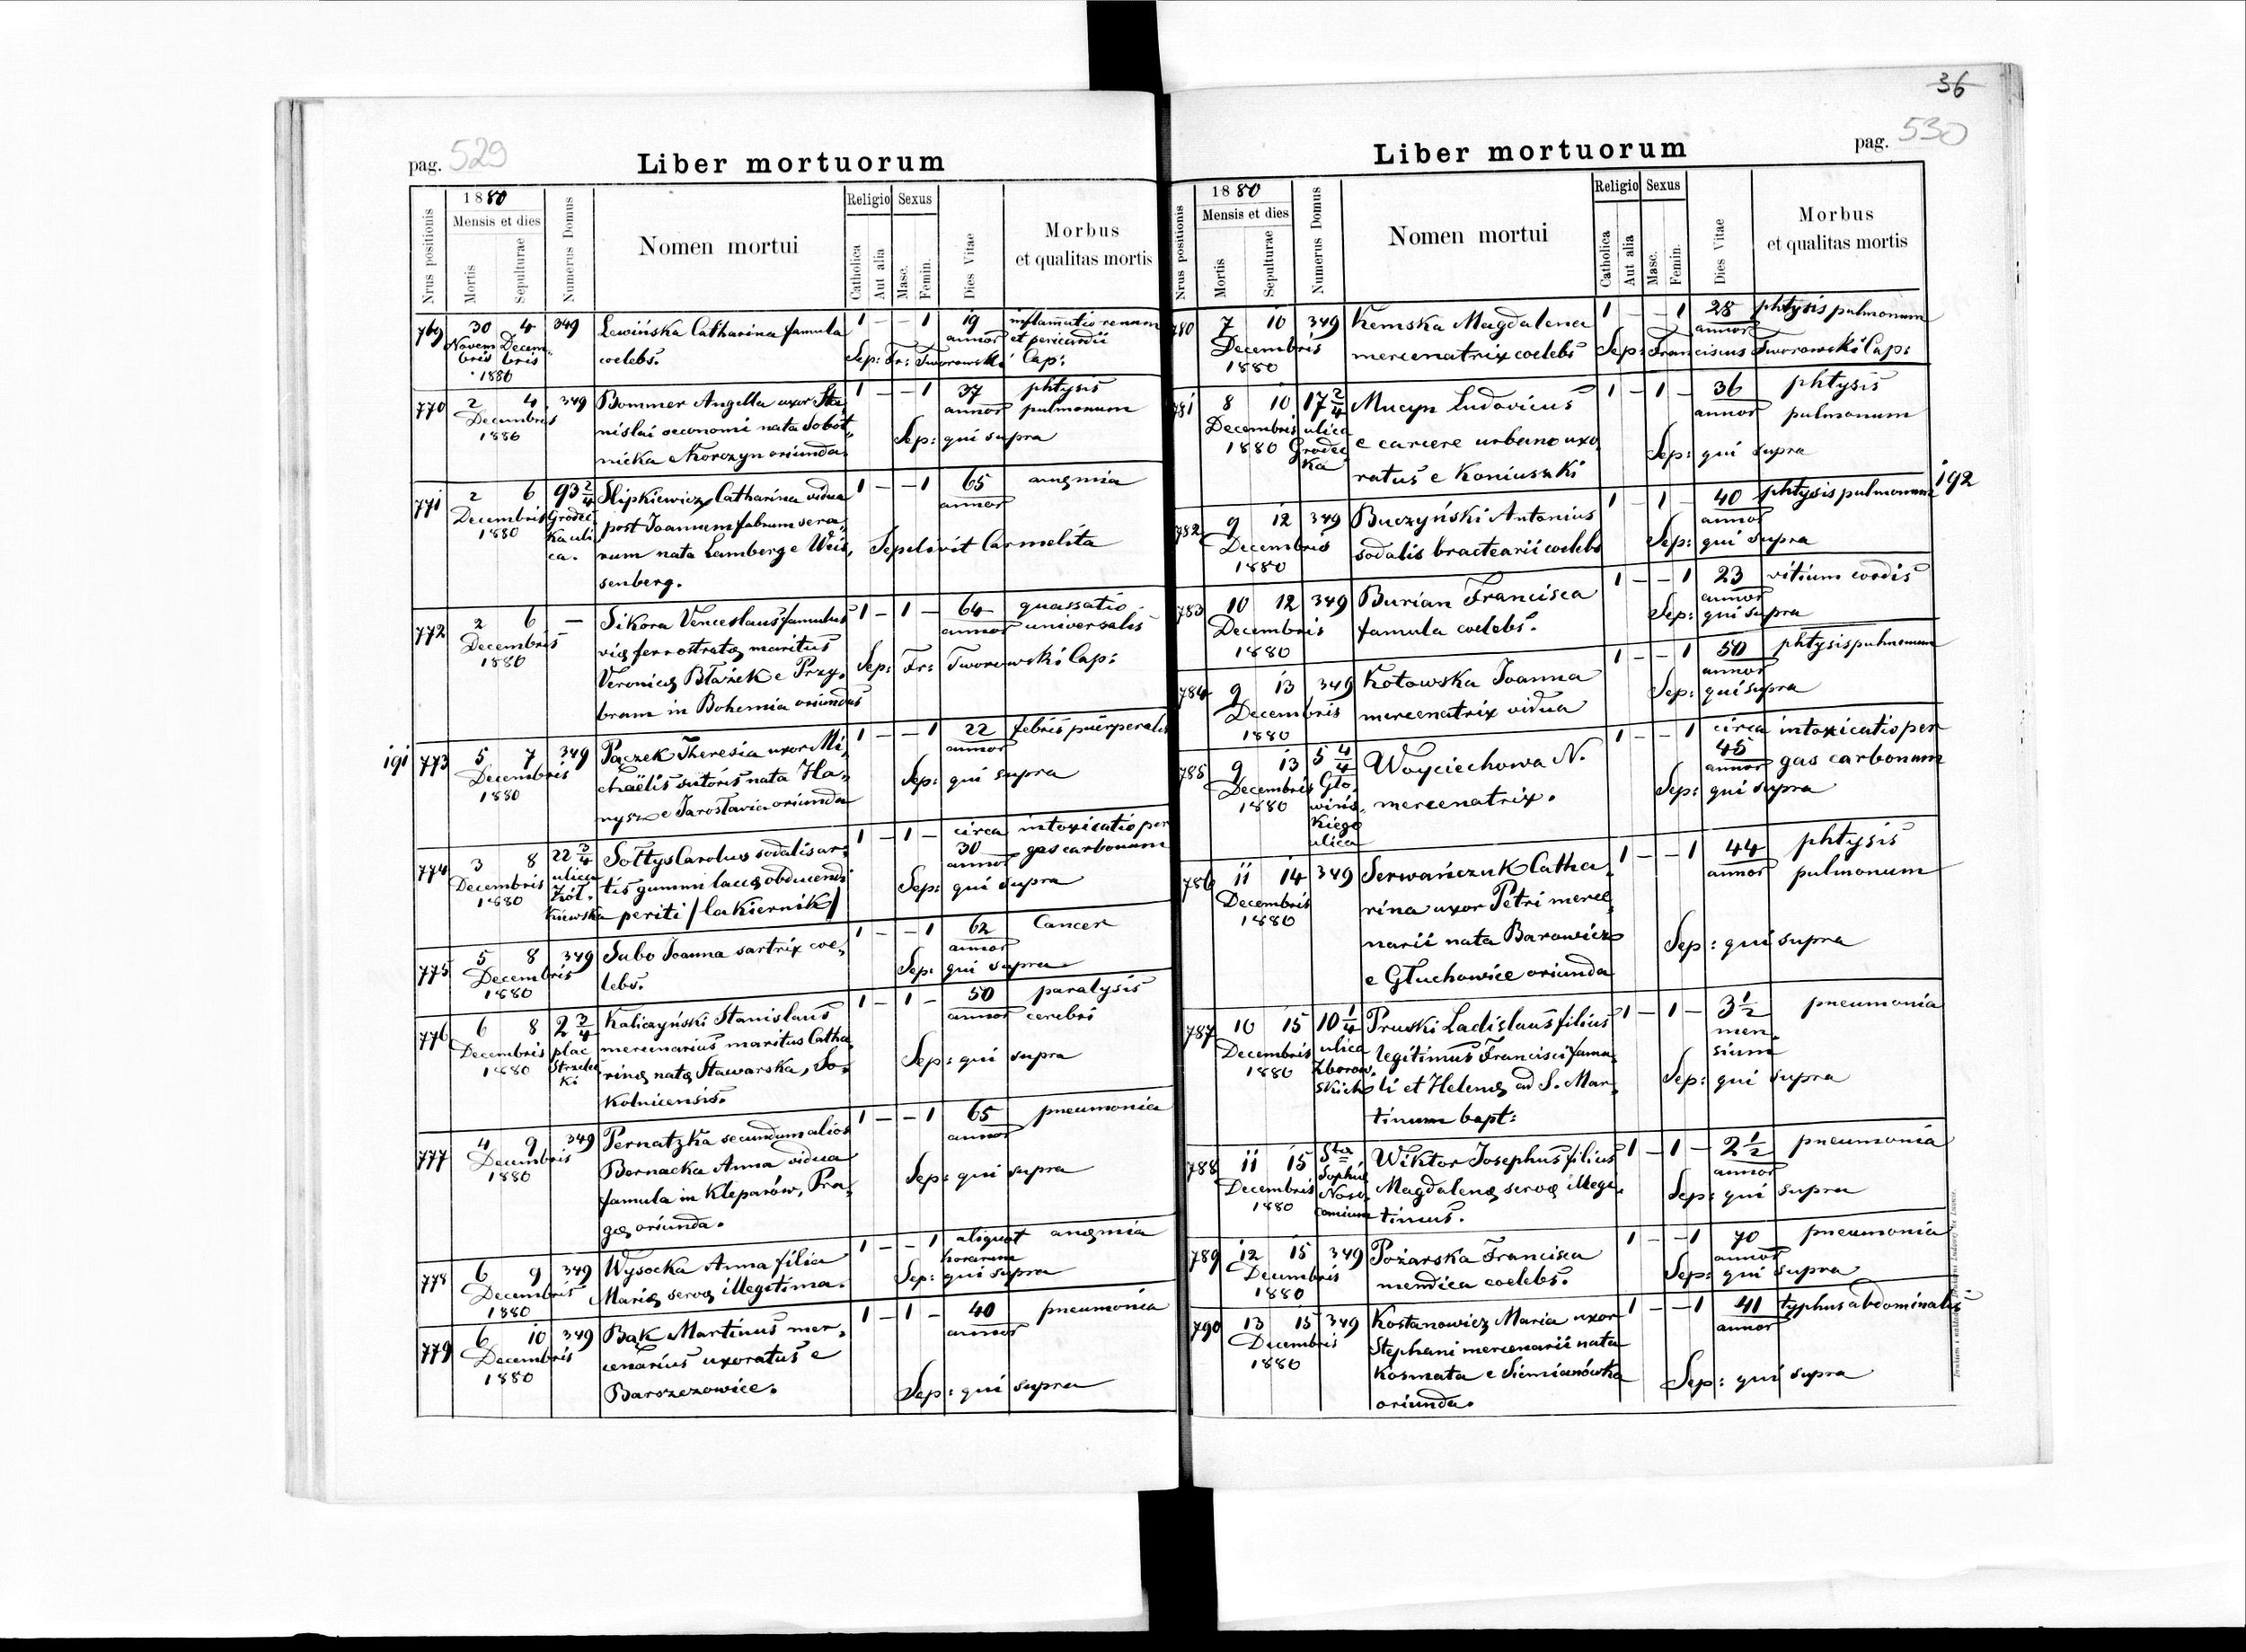 36
pag. 529
Liber mortuorum
1880
Mensis et dies
Nrus positionis
Mortis
Sepulturae
Numerus Domus
Nomen mortui
Religio
Catholica
Aut alia
Sexus
Masc.
Femin.
Dies Vitae
Morbus
et qualitas mortis
769 30 4 349 Lewińska Catharina famula 1 - - 1 19 inflamatio renum
Novem Decem annor et pericardii
bris bris coelebs. Sep: Fr: Tworowski Cap:
1880
770 2 4 349 Bommer Angella uxor Sta 1 - - 1 37 phtysis
Decembris nislai oeconomi nata Sobot annor pulmonum
1880 nicka e Korczyn oriunda. Sep: qui supra
771 2 6 93 2/4 Slipkiewicz Catharina vidua 1 - - 1 65 anęmia
Decembris Grodec post Joannem fabrum sera annor
1880 ka uli rum nata Lamberg e Weis Sepelivit Carmelita
ca. senberg.
772 2 6 - Sikora Venceslaus famulus 1 - 1 - 64 quassatio
Decembris vię ferrostratę maritus annor universalis
1880 Veronicę Błażek e Przy Sep: Fr: Tworowski Cap:
bram in Bohemia oriundus
191
773 5 7 349 Pączek Theresia uxor Mi 1 - - 1 22 febris puerperalis
Decembris chaëlis sutoris nata Ha annor
1880 nysz e Jarosłavia oriunda Sep: qui supra
774 3 8 22 3/4 Sołtys Carolus sodalis ar 1 - 1 - circa intoxicatio per
Decembris ulica tis gummi laccę obducendi 30 gas carbonum
1880 Żół annor
kiewska periti /lakiernik/ Sep: qui supra
775 5 8 349 Subo Joanna sartrix coe 1 - - 1 62 Cancer
Decembris lebs. annor
1880 Sep: qui supra
776 6 8 2 3/4 Kaliczyński Stanislaus 1 - 1 - 50 paralysis
Decembris plac mercenarius maritus Catha annor cerebri
1880 Strzelec rinę natę Stawarska, So Sep: qui supra
ki kolnicensis.
777 4 9 349 Pernatzka secundum alios 1 - - 1 65 pneumonia
Decembris Bernacka Anna vidua annor
1880 famula in Kleparów, Pra Sep: qui supra
gę oriunda.
778 6 9 349 Wysocka Anna filia 1 - - 1 aliquot anęmia
Decembris Marię servę illegitima. horarum
1880 Sep: qui supra
779 6 10 349 Bąk Martinus mer 1 - 1 - 40 pneumonia
Decembris cenarius uxoratus e annor
1880 Barszczowice. Sep: qui supra
Liber mortuorum
pag. 530
1880
Mensis et dies
Nrus positionis
Mortis
Sepulturae
Numerus Domus
Nomen mortui
Religio
Catholica
Aut alia
Sexus
Masc.
Femin.
Dies Vitae
Morbus
et qualitas mortis
780 7 10 349 Kemska Magdalena 1 - - 1 28 phtysis pulmonum
Decembris mercenatrix coelebs annor
1880 Sep: Franciscus Tworowski Cap:
781 8 10 17 2/4 Mucyn Ludovicus 1 - 1 - 36 phtysis
Decembris ulica e carcere urbano uxo annor pulmonum
1880 Grodec ratus e Koniuszki Sep: qui supra
ka
192
782 9 12 349 Buczyński Antonius 1 - 1 - 40 phtysis pulmonum
Decembris sodalis bractearii coelebs annor
1880 Sep: qui supra
783 10 12 349 Burian Francisca 1 - - 1 23 vitium cordis
Decembris famula coelebs. annor
1880 Sep: qui supra
784 9 13 349 Kotowska Joanna 1 - - 1 50 phtysis pulmonum
Decembris mercenatrix vidua annor
1880 Sep: qui supra
785 9 13 5 4/4 Woyciechowa N. 1 - - 1 circa intoxicatio per
Decembris Gło mercenatrix. 45 gas carbonum
1880 wińs annor
kiego Sep: qui supra
ulica
786 11 14 349 Serwańczuk Catha 1 - - 1 44 phtysis
Decembris rina uxor Petri merce annor pulmonum
1880 narii nata Barowicz Sep: qui supra
e Głuchowice oriunda
787 10 15 10 1/4 Pruski Ladislaus filius 1 - 1 - 3 1/2 pneumonia
Decembris ulica legitimus Francisci famu men
1880 Zborow li et Helenę ad S. Mar sium
skich tinum bapt: Sep: qui supra
788 11 15 Sta Wiktor Josephus filius 1 - 1 - 2 1/2 pneumonia
Decembris Sophię Magdalenę servę illegi annor
1880 Noso timus. Sep: qui supra
comium
789 12 15 349 Pożarska Francisca 1 - - 1 70 pneumonia
Decembris mendica coelebs. annor
1880 Sep: qui supra
790 13 15 349 Kostanowicz Maria uxor 1 - - 1 41 typhus abdominalis
Decembris Stephani mercenarii nata annor
1880 Kosmata e Siemianówka Sep: qui supra
oriunda.